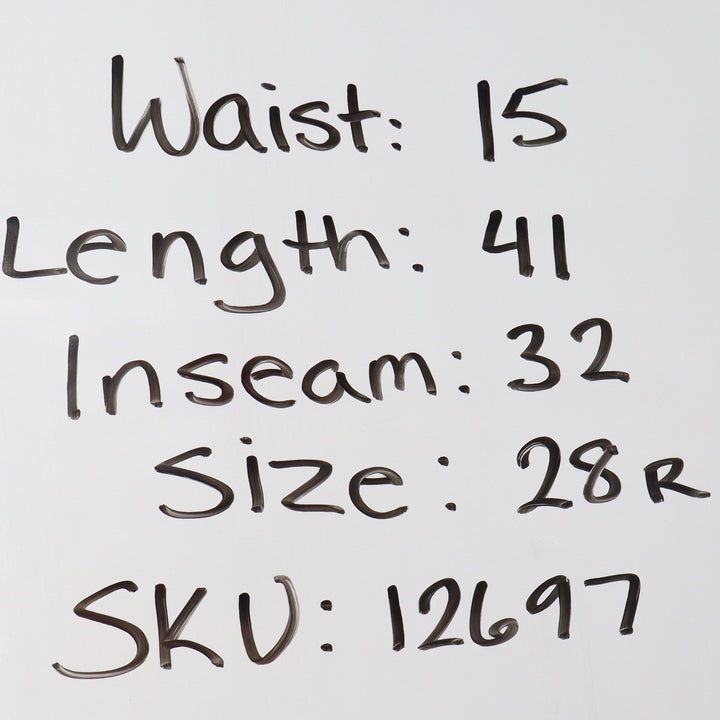 Waist: 15
Length: 41
Inseam: 32
Size: 28R
SKU: 12697